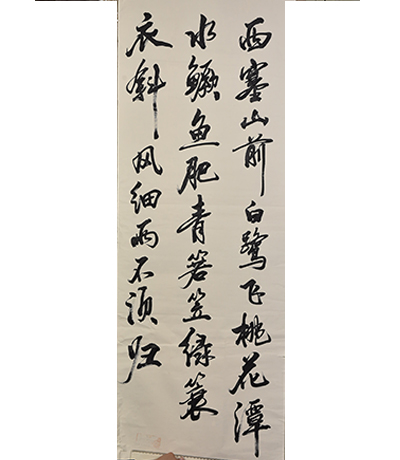 西塞山前白鹭飞桃花潭
水鳜鱼肥青箬笠绿簑
衣斜风细雨不须归